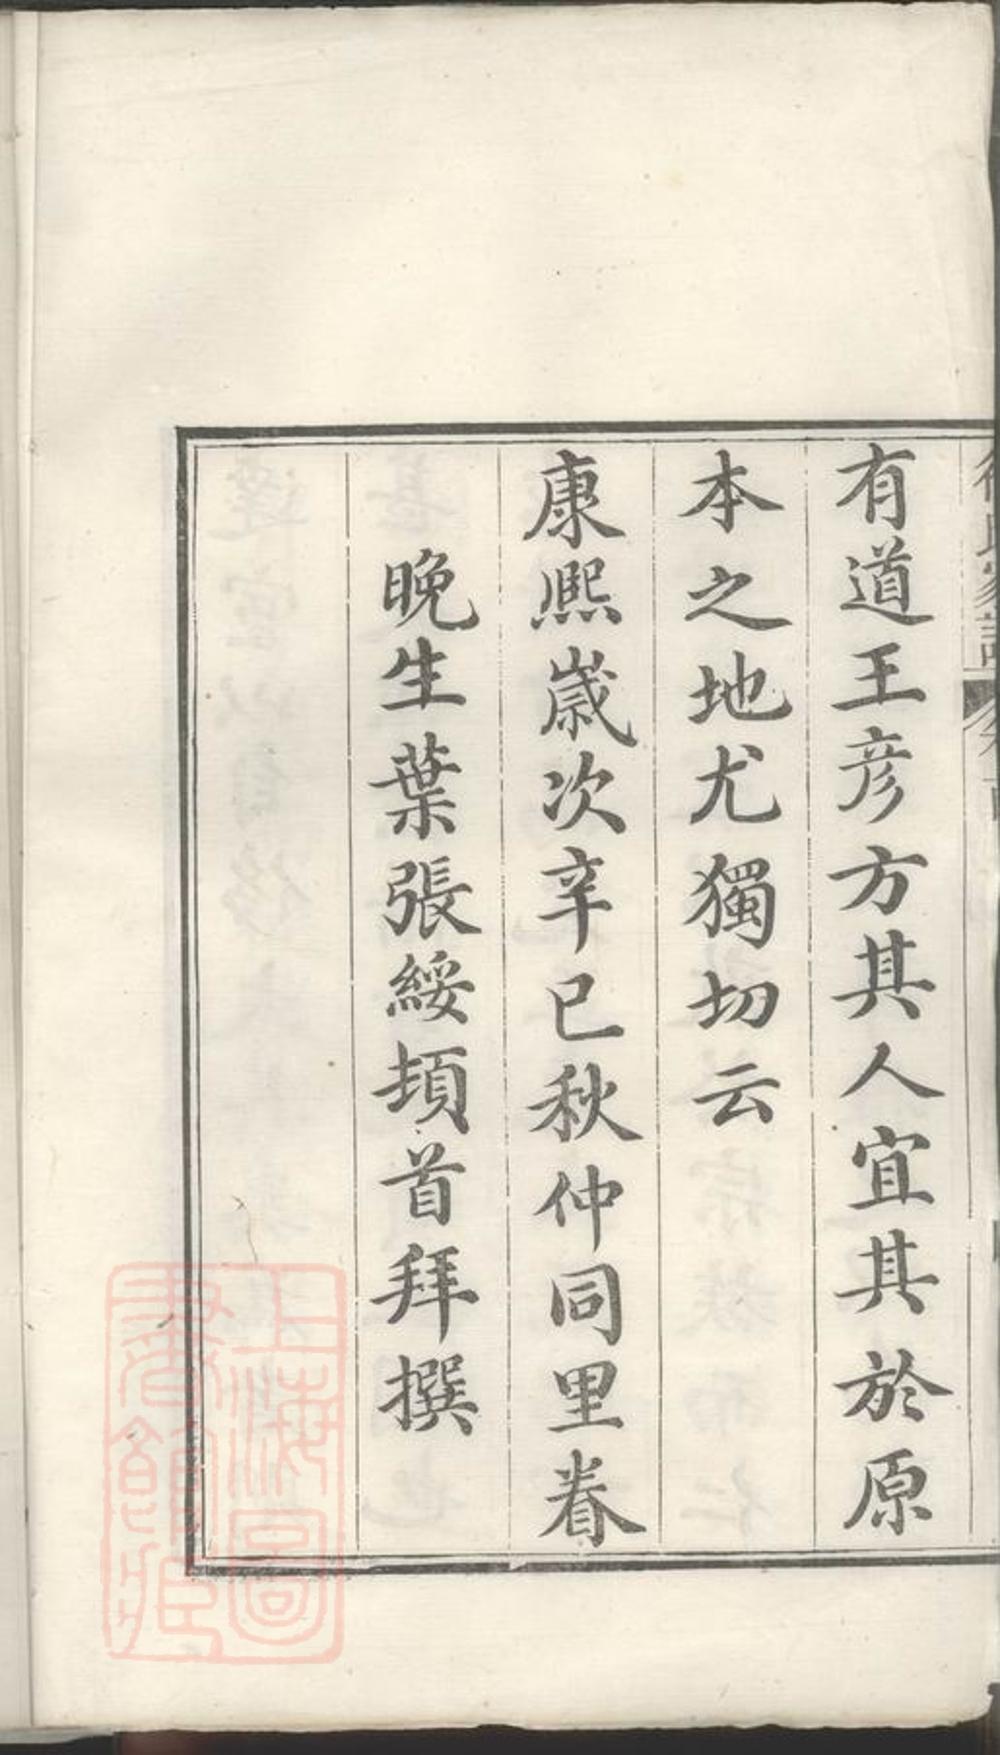 有道王彦方其人宜其於原
本之地尤獨切云
康熙歳次辛巳秋仲同里眷
晚生葉張綏頓首拜撰
上海圖書館藏